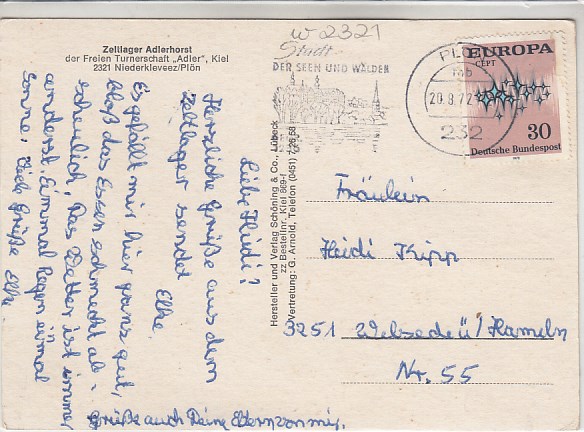 w 2321
Zeltlager Adlerhorst
der Freien Turnerschaft „Adler", Kiel
2321 Niederkleveez/Plön
Stadt
DER SEEN UND WÄLDER
PLÖN
mb
20.8.72
232
EUROPA
CEPT
30
Deutsche Bundespost
Liebe Heidi!
Herzliche Grüße aus dem
Zeltlager sendet
Elke.
Es gefällt mir hier ganz gut,
bloß das Essen schmeckt ab-
scheulich, Das Wetter ist immer
anderst. Einmal Regen einmal
Sonne. Viele Grüße Elke
Grüße auch Deine Eltern von mir.
Hersteller und Verlag Schöning & Co., Lübeck
zz Bestellnr. Kiel 869-f
Vertretung: G. Arnold, Telefon (0451) 7 26 58
Fräulein
Heidi Kipp
3251 /Hameln
Nr. 55